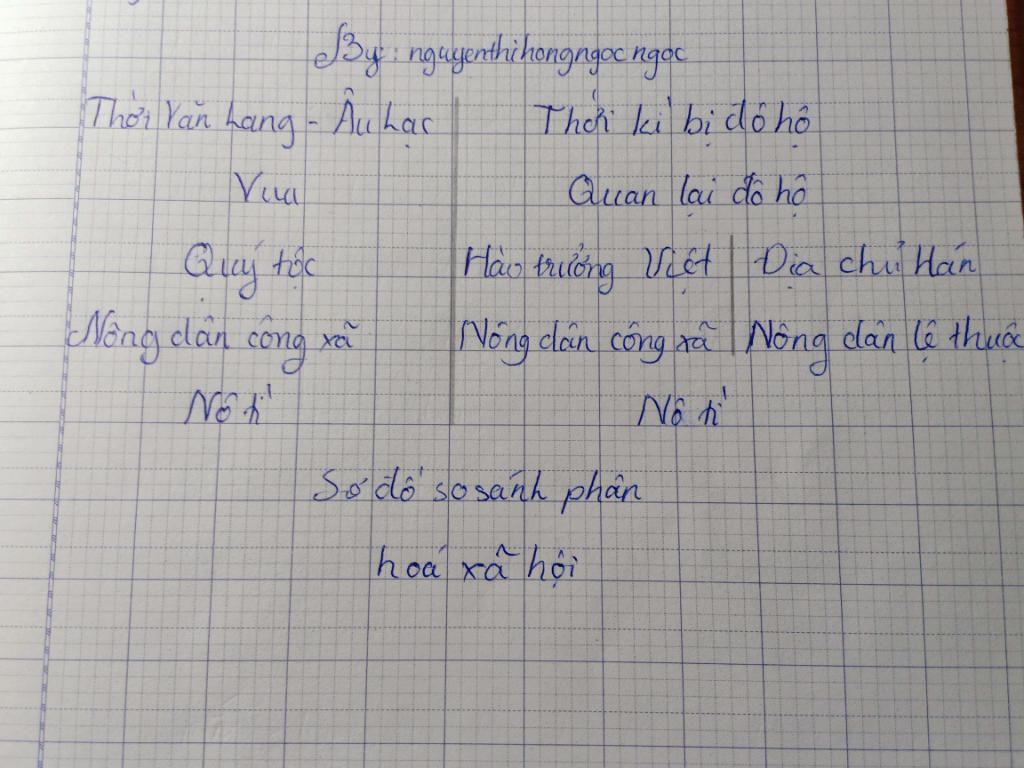 By: nguyenthihongngocngoc
Thời Văn Lang - Âu Lạc Thời kì bị đô hộ
Vua Quan lại đô hộ
Quý tộc Hào trưởng Việt Địa chủ Hán
Nông dân công xã Nông dân công xã Nông dân lệ thuộc
Nô tì Nô tì
Sơ đồ so sánh phân
hoá xã hội